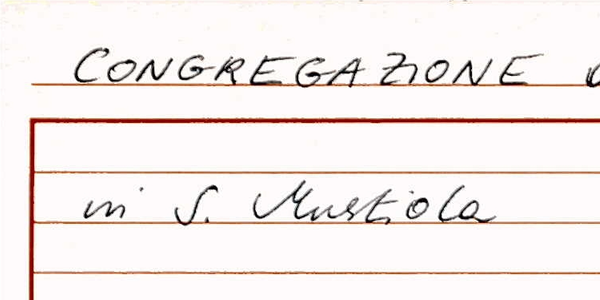 CONGREGAZIONE
in S. Mustiola